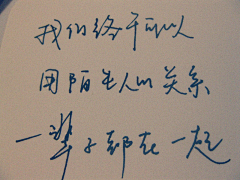 我们终于可以
用陌生人的关系
一辈子都在一起